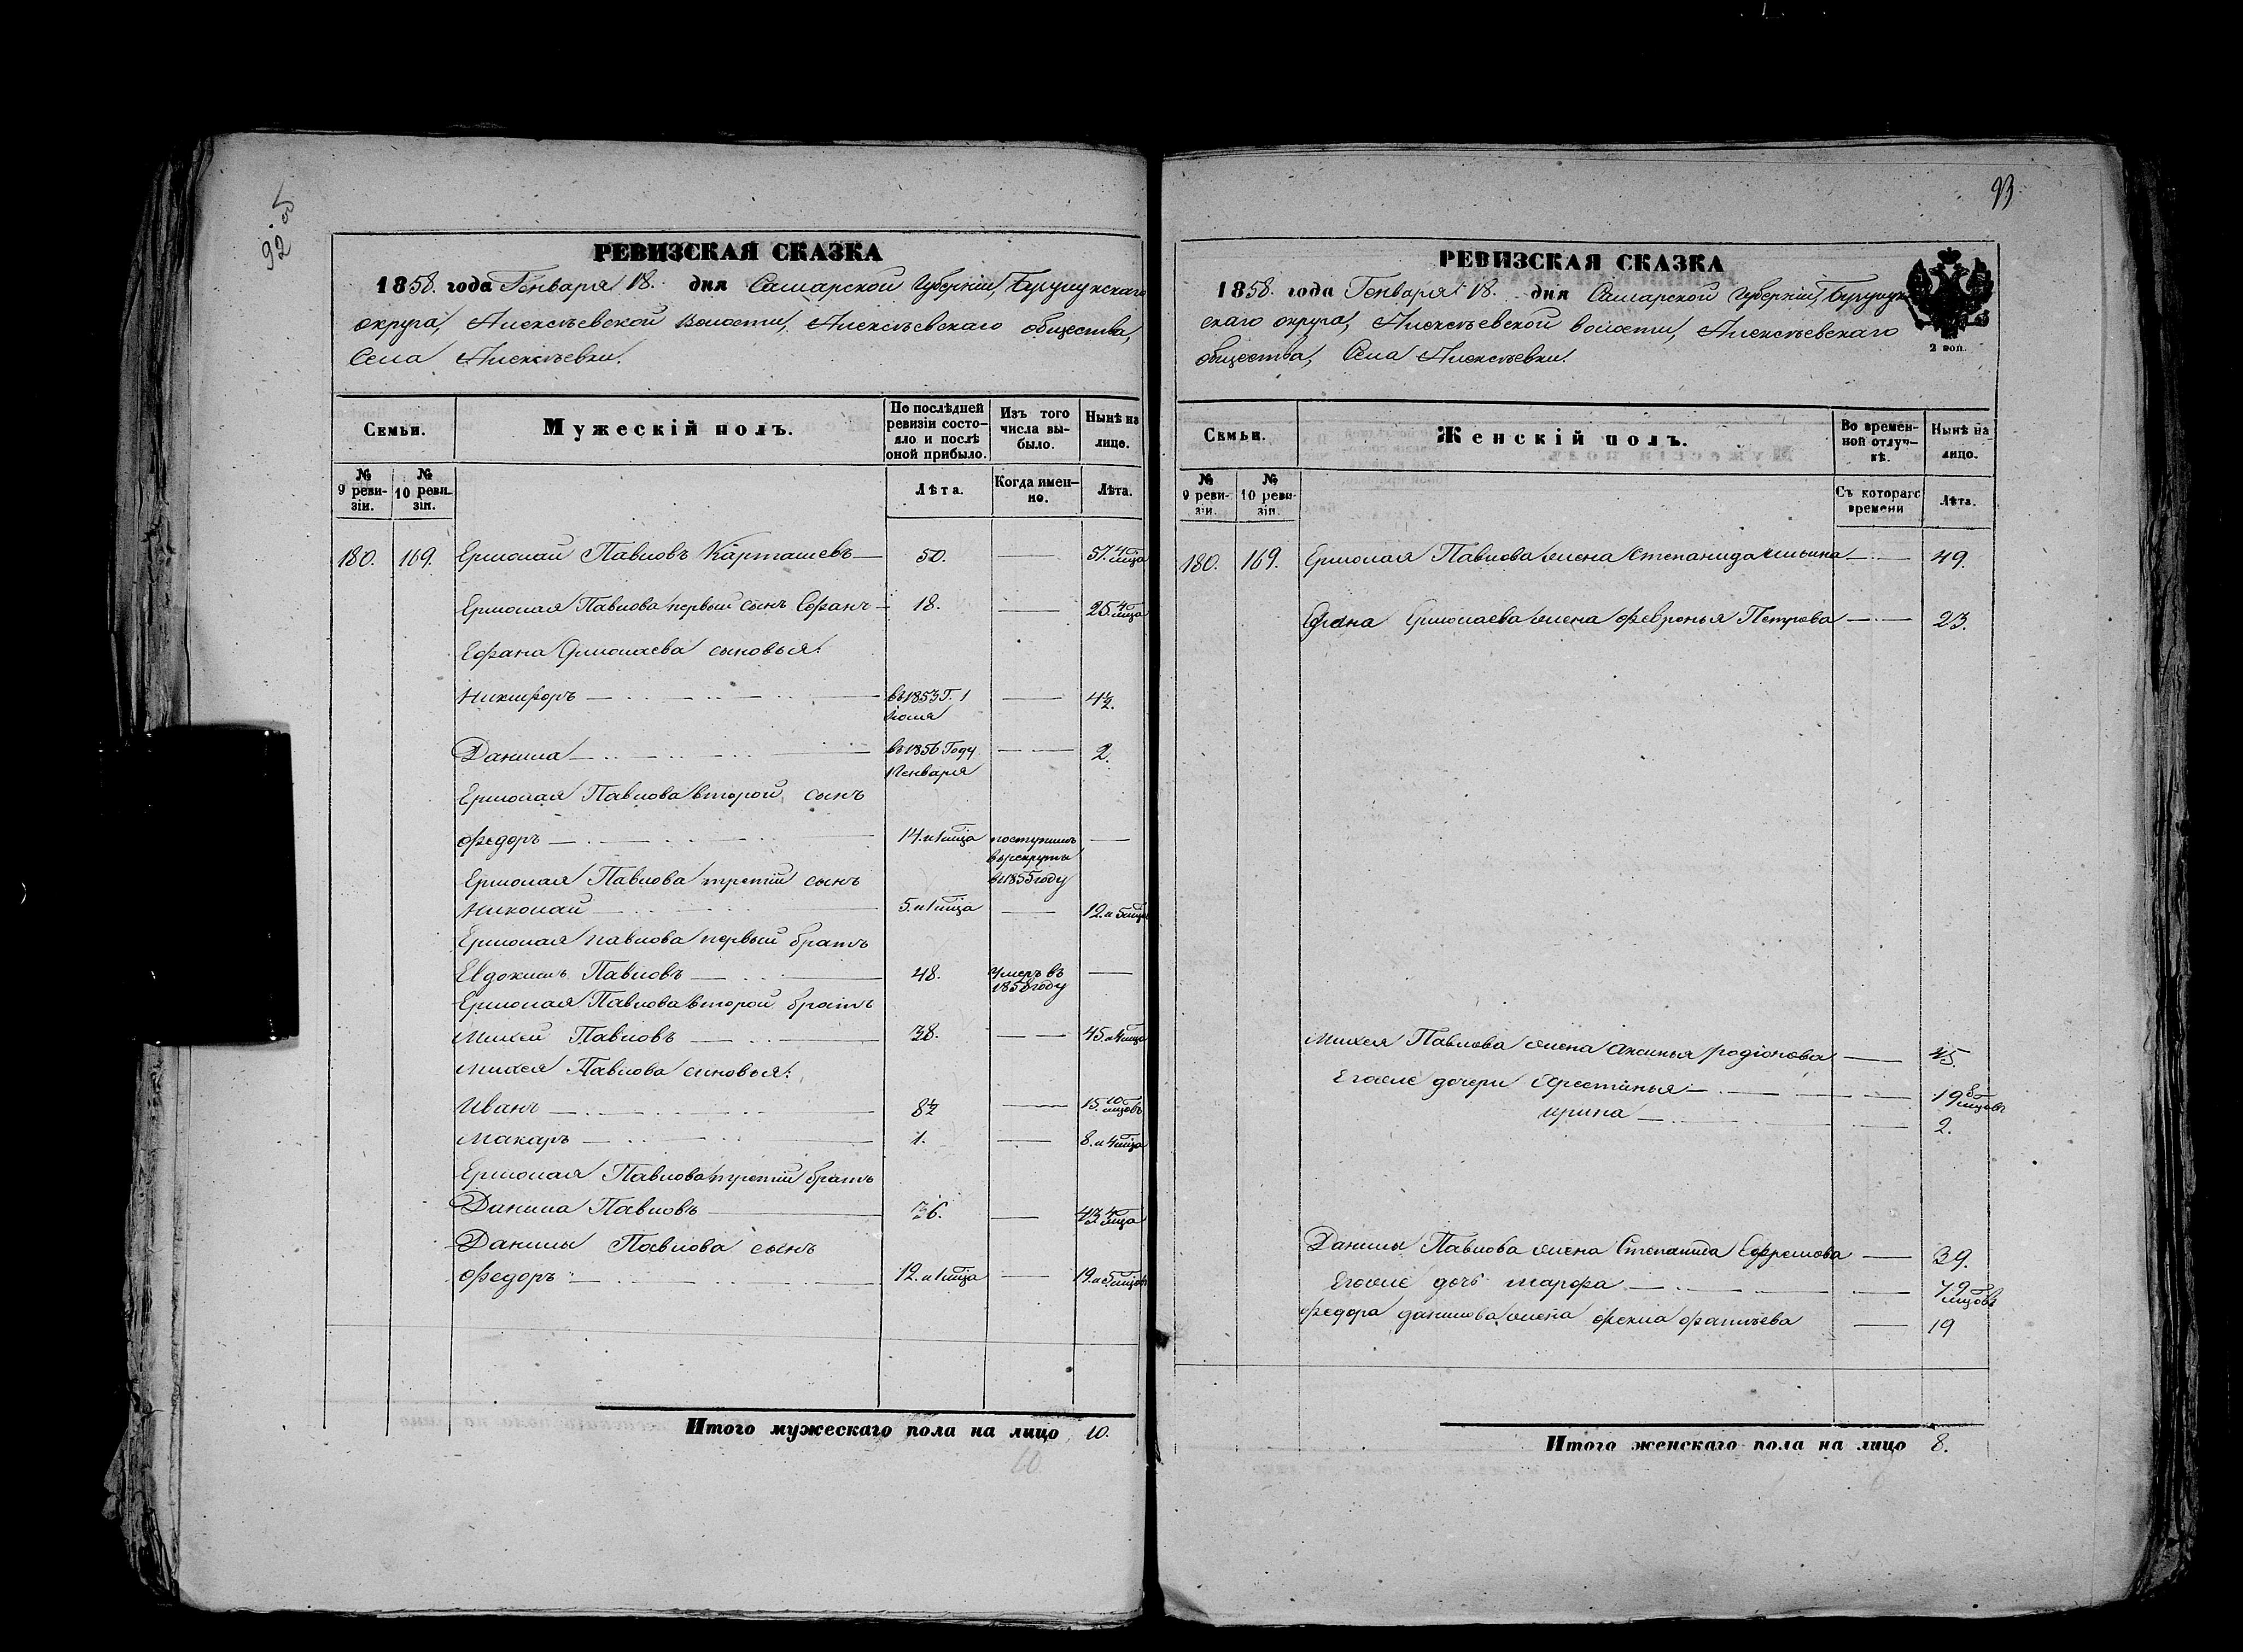 92 об
РЕВИЗСКАЯ СКАЗКА
1858. года Генваря 18. дня Самарской Губерніи, Бугурукскаго
округа, Алексѣевской волости, Алексѣевскаго общества,
Села Алексѣевки.
Семьи.
Мужескій полъ.
По послѣдней ревизіи состояло и послѣ оной прибыло.
Изъ того числа выбыло.
Нынѣ на лице.
№ 9 ревизіи.
№ 10 ревизіи.
Лѣта.
Когда именно.
Лѣта.
180. 169. Ермолай Павловъ Карташевъ — 50. — 57. 4 мѣца
Ермолая Павлова первый сынъ Ефанъ — 18. — 25. 4 мѣца
Ефана Ермолаева сыновья:
Никифоръ — въ 1853 г. 1 Іюля — 4½.
Данила — въ 1856 Году 1 Генваря — 2.
Ермолая Павлова второй сынъ
Федоръ — 14. и 1 мѣца поступилъ въ рекруты въ 1855 году —
Ермолая Павлова третій сынъ
Николай — 5. и 1 мѣца — 12. и 5 мѣцов
Ермолая Павлова первый братъ
Евдокимъ Павловъ — 48. умеръ въ 1850 году —
Ермолая Павлова второй братъ
Михей Павловъ — 38. — 45. и 4 мѣца
Михея Павлова сыновья:
Иванъ — 8½ — 15. 10 мѣцовъ
Макаръ — 1. — 8. и 4 мѣца
Ермолая Павлова третій братъ
Данила Павловъ — 36. — 43 4 мѣца
Данилы Павлова сынъ
Федоръ — 12. и 1 мѣца — 19. и 5 мѣцов
Итого мужескаго пола на лицо 10.
10
93
РЕВИЗСКАЯ СКАЗКА
1858. года Генваря 18. дня Самарской Губерніи, Бугурук-
скаго округа, Алексѣевской волости, Алексѣевскаго
общества, Села Алексѣевки.
2 коп.
Семьи.
Женскій полъ.
Во временной отлучкѣ.
Нынѣ на лицо.
№ 9 ревизіи.
№ 10 ревизіи.
Съ котораго времени
Лѣта.
180. 169. Ермолая Павлова жена Степанида Ильина — 49.
Ефана Ермолаева жена Февронья Петрова — 23.
Михея Павлова жена Аксинья Родіонова — 45.
Его же дочери Афестинья — 19 8 мѣцовъ
Ирина — 2.
Данилы Павлова жена Степанида Ефремова — 39.
Его же дочь Марфа — 7 9 мѣцовъ
Федора Данилова жена Фекла — 19
Итого женскаго пола на лицо 8.